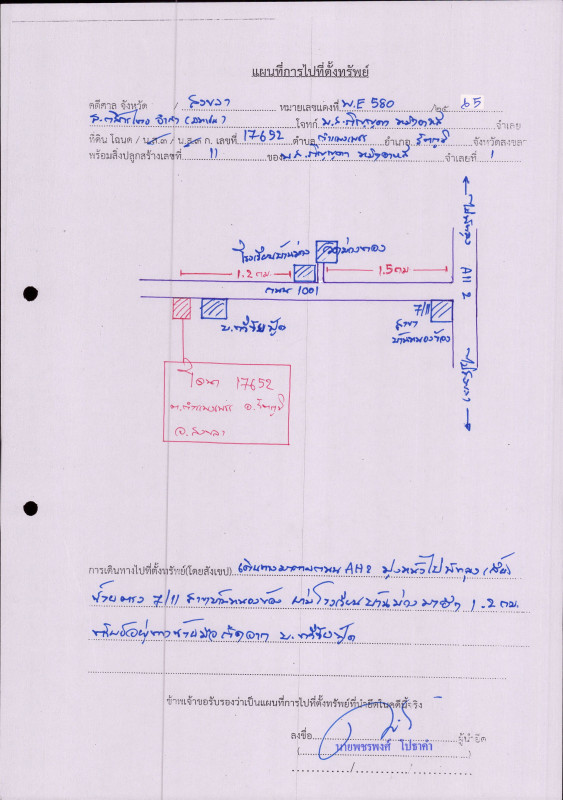 แผนที่การไปที่ตั้งทรัพย์
คดีศาล จังหวัด / สงขลา หมายเลขแดงที่ ผบ.E 580 /๒๕ 65
จำกัด (มหาชน) โจทก์ น.ส. จำเลย
ที่ดิน โฉนด / น.ส.๓ / น.ส.๓ ก. เลขที่ 17652 ตำบล กำแพงเพชร อำเภอ รัตภูมิ จังหวัดสงขลา
พร้อมสิ่งปลูกสร้างเลขที่ 11 ของ น.ส. จำเลยที่ 1
ไปพัทลุง
โรงเรียนบ้านม่วง
วัดม่วงทอง
AH 2
1.2 กม.
1.5 กม
ถนน 1001
7/11
สาขา
บ้านหนองข้อง
บ. ฟู้ด
โฉนด 17652
ต.กำแพงเพชร อ.รัตภูมิ
จ.สงขลา
การเดินทางไปที่ตั้งทรัพย์(โดยสังเขป) เดินทางมาตามถนน AH2 มุ่งหน้าไปพัทลุง เลี้ยว
ซ้ายตรง 7/11 สาขาบ้านหนองข้อง ผ่านโรงเรียนบ้านม่วง มาอีก 1.2 กม.
ทรัพย์อยู่ทางซ้ายมือ ถัดจาก บ. ฟู้ด
ข้าพเจ้าขอรับรองว่าเป็นแผนที่การไปที่ตั้งทรัพย์ที่นำยึดในคดีนี้จริง
ลงชื่อ ผู้นำยึด
(นายพชรพงศ์ ไปธาคำ)
/ /